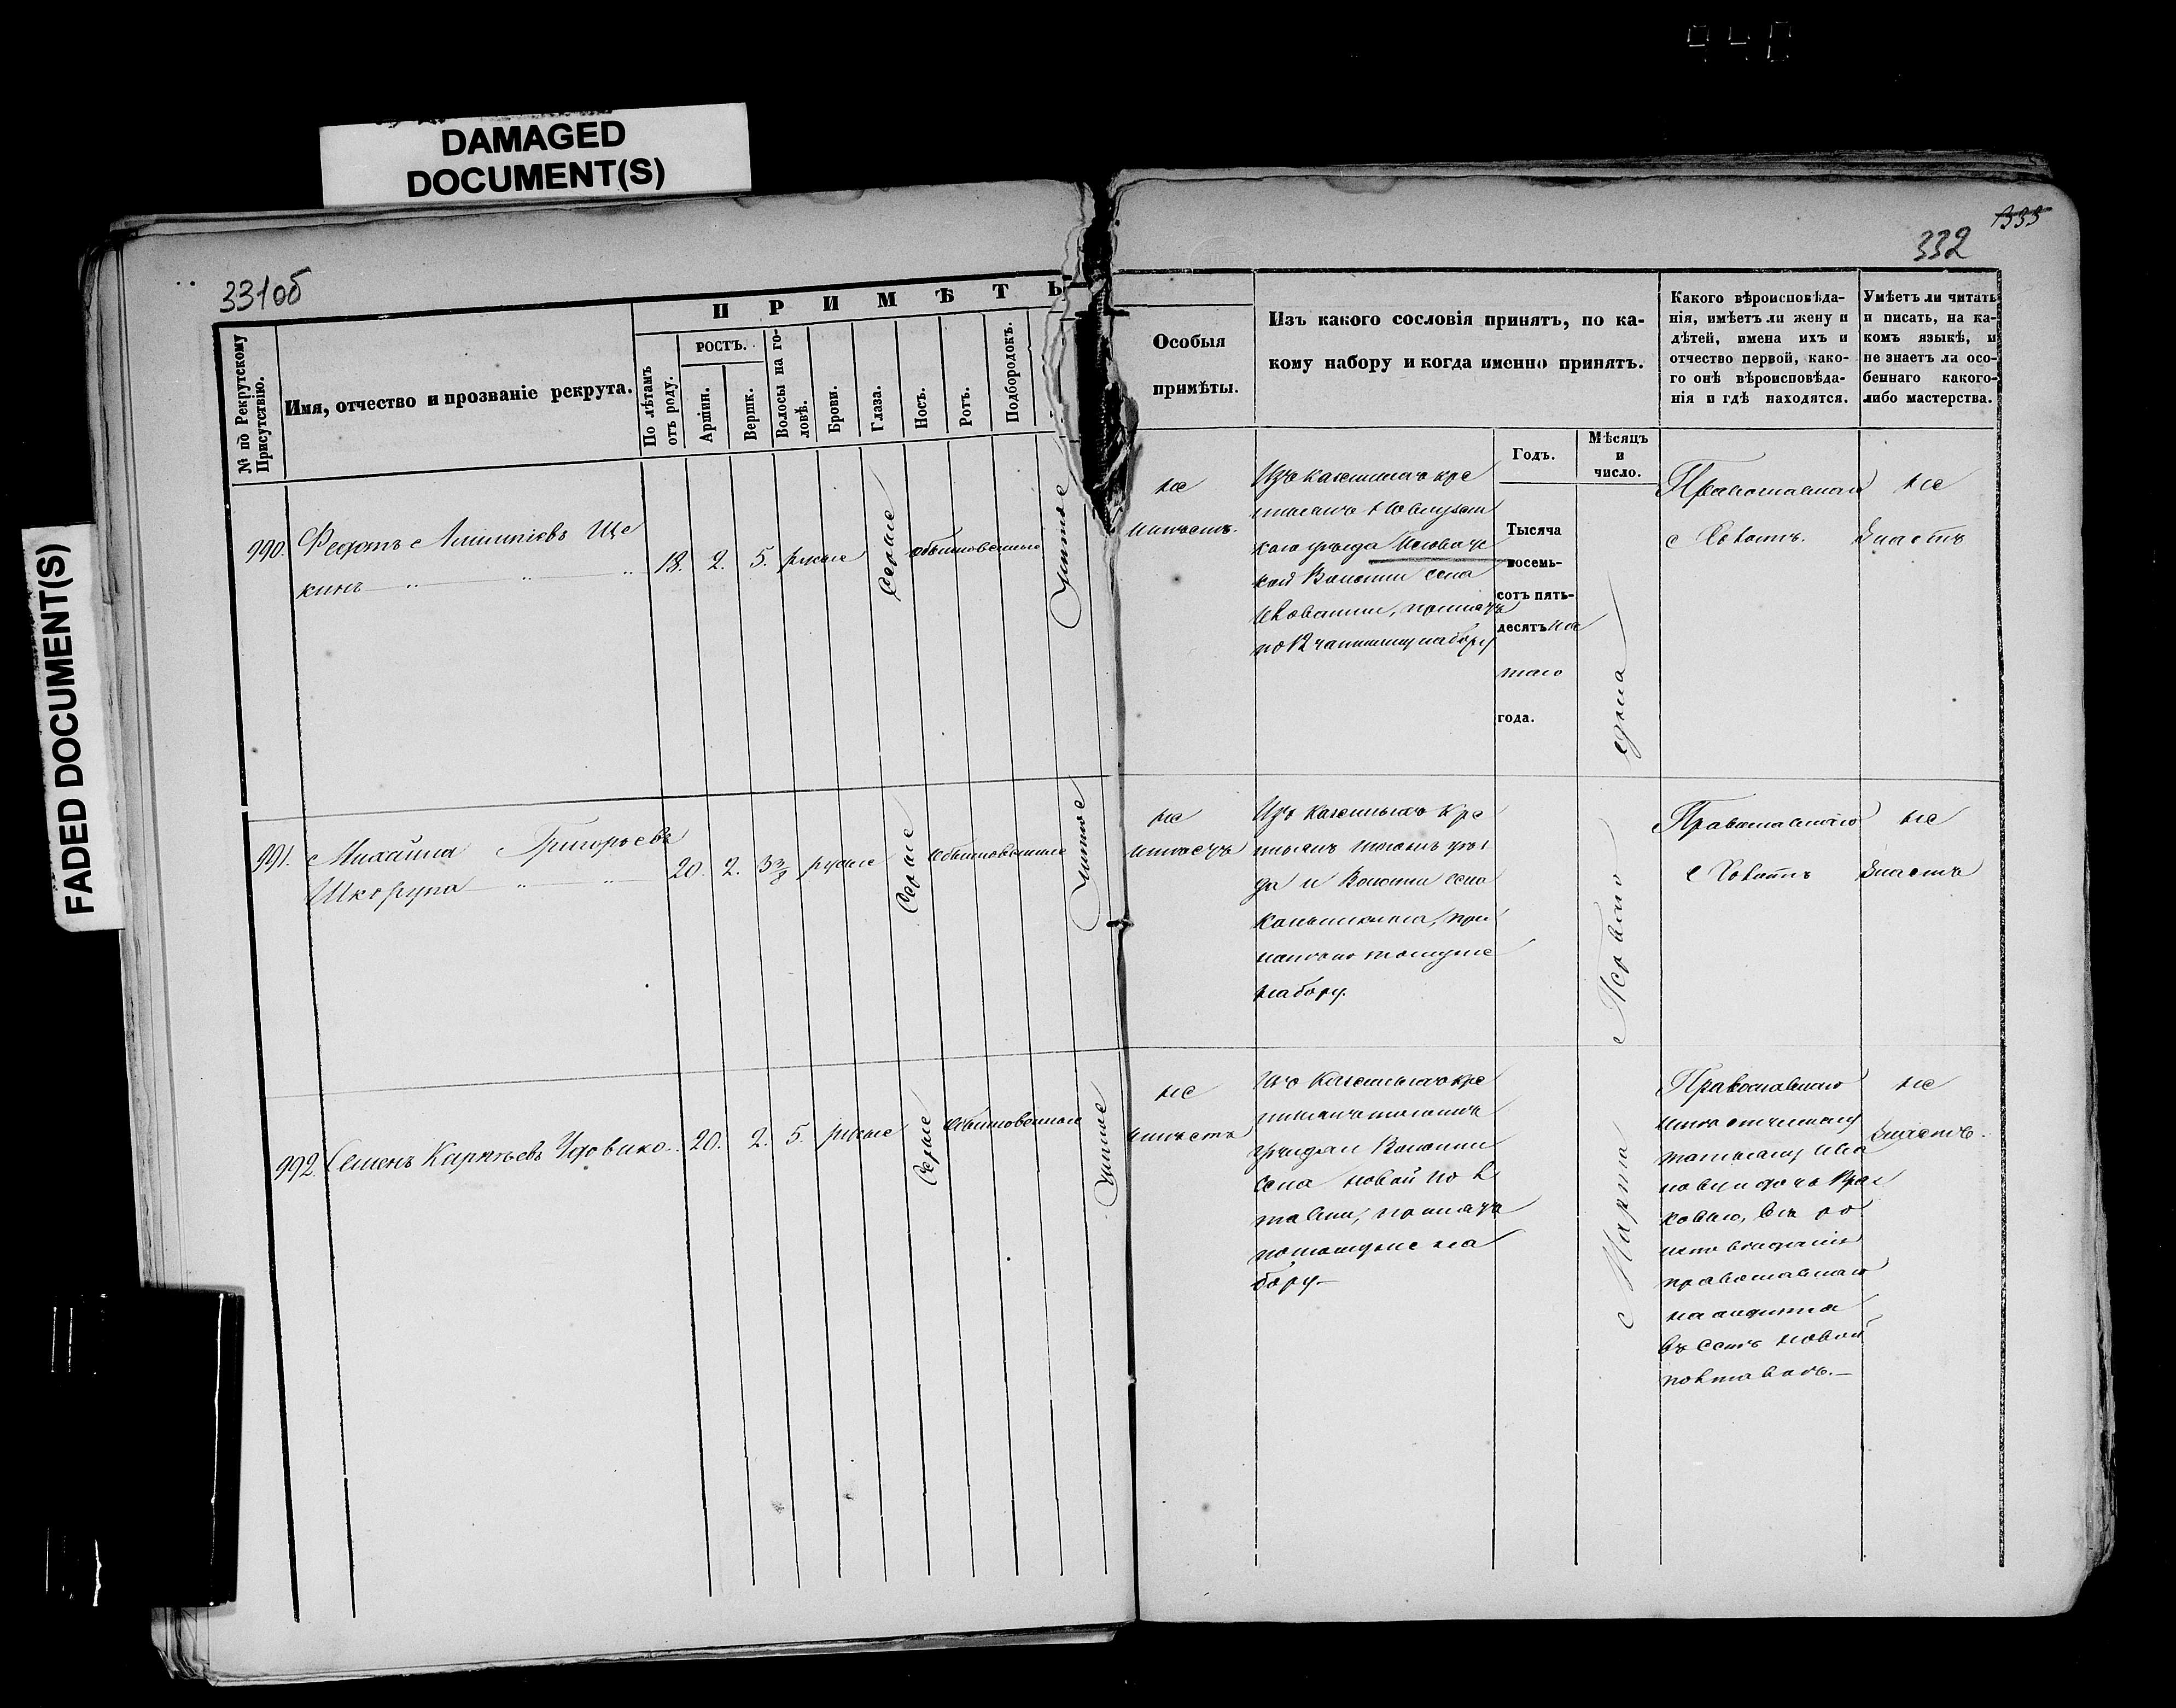 DAMAGED
DOCUMENT(S)
FADED DOCUMENT(S)
331об
332
№ по Рекрутскому
Присутствію.
Имя, отчество и прозваніе рекрута.
ПРИМѢТЫ
По лѣтамъ
отъ роду.
РОСТЪ.
Аршин.
Вершк.
Волосы на го-
ловѣ.
Брови.
Глаза.
Носъ.
Ротъ.
Подбородокъ.
Особыя
примѣты.
Изъ какого сословія принятъ, по ка-
кому набору и когда именно принятъ.
Годъ.
Мѣсяцъ
и
число.
Какого вѣроисповѣда-
нія, имѣетъ ли жену и
дѣтей, имена ихъ и
отчество первой, како-
го онѣ вѣроисповѣда-
нія и гдѣ находятся.
Умѣетъ ли читать
и писать, на ка-
комъ языкѣ, и
не знаетъ ли осо-
беннаго какого-
либо мастерства.
990. Федотъ Ще
кинъ
18. 2. 5. русые
Серые
обыкновенные
Чистое
не
имѣетъ.
Изъ казенныхъ кре
стьянъ
каго уѣзда
кой Волости села
принятъ
по 12 частному набору
Тысяча
восемь-
сотъ пять-
десятъ
таго
года.
Православнаго
Холостъ.
не
Знаетъ
991. Михайла Григорьевъ
Шкорупа
20. 2. 3 3/8 русые
Серые
обыкновенные
Чистое
не
имѣетъ
Изъ казенныхъ Кре
стьянъ уѣз
да и Волости села
при
нятъ по томуже
набору.
Марта Перваго дня
Православнаго
Холостъ
не
Знаетъ
992. Семенъ Карпьевъ
20. 2. 5. русые
Серые
обыкновенные
Чистое
не
имѣетъ
Изъ Казенныхъ кре
стьянъ
Волости
Села новой По л
тавки, принятъ
потомуже на
бору
Православнаго
Ива
новну и дочь
православнаго
находится
въ селѣ новой
полтавкѣ.
не
знаетъ.